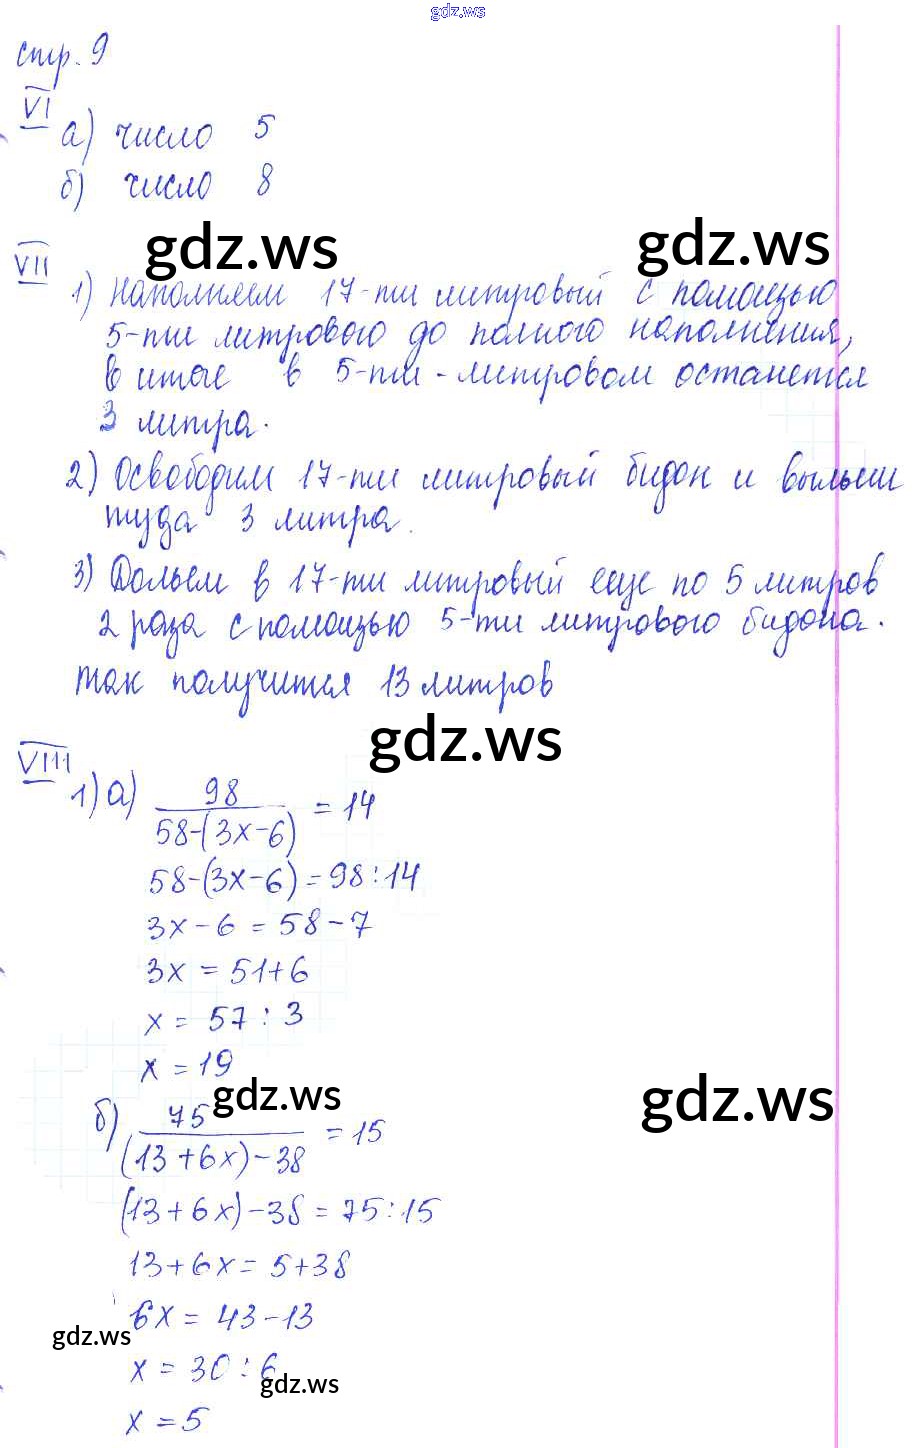 gdz.ws
стр. 9
VI
а) число 5
б) число 8
gdz.ws
gdz.ws
VII
1) Наполняем 17-ти литровый с помощью
5-ти литрового до полного наполнения,
в итоге в 5-ти-литровом останется
3 литра.
2) Освободим 17-ти литровый бидон и выльем
туда 3 литра.
3) Дольем в 17-ти литровый еще по 5 литров
2 раза с помощью 5-ти литрового бидона.
так получится 13 литров
gdz.ws
VIII
1) а) 98 / 58-(3x-6) = 14
58-(3x-6) = 98:14
3x-6 = 58-7
3x = 51+6
x = 57:3
x = 19
gdz.ws
gdz.ws
б) 75 / (13+6x)-38 = 15
(13+6x)-38 = 75:15
13+6x = 5+38
6x = 43-13
gdz.ws
x = 30:6
gdz.ws
x = 5